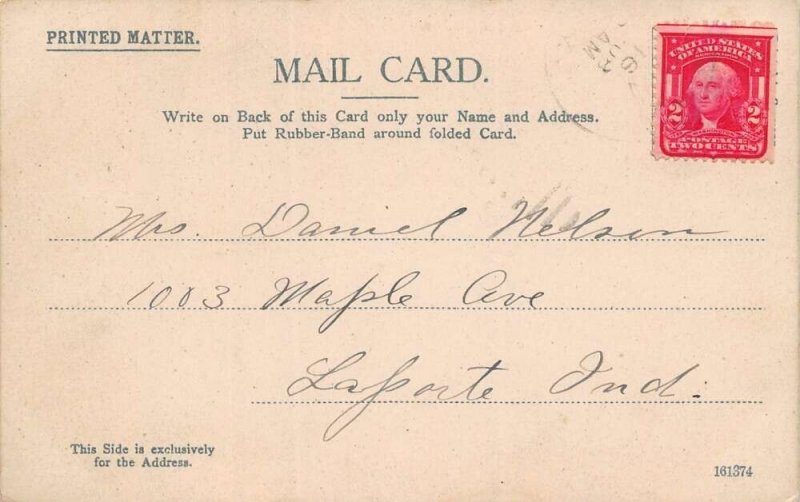 PRINTED MATTER.
MAIL CARD.
Write on Back of this Card only your Name and Address.
Put Rubber-Band around folded Card.
AM
UNITED STATES
OF AMERICA
2 2
WASHINGTON
POSTAGE
TWO CENTS
Mrs. Daniel Nelson
1003 Maple Ave
LaPorte Ind.
This Side is exclusively
for the Address.
161374